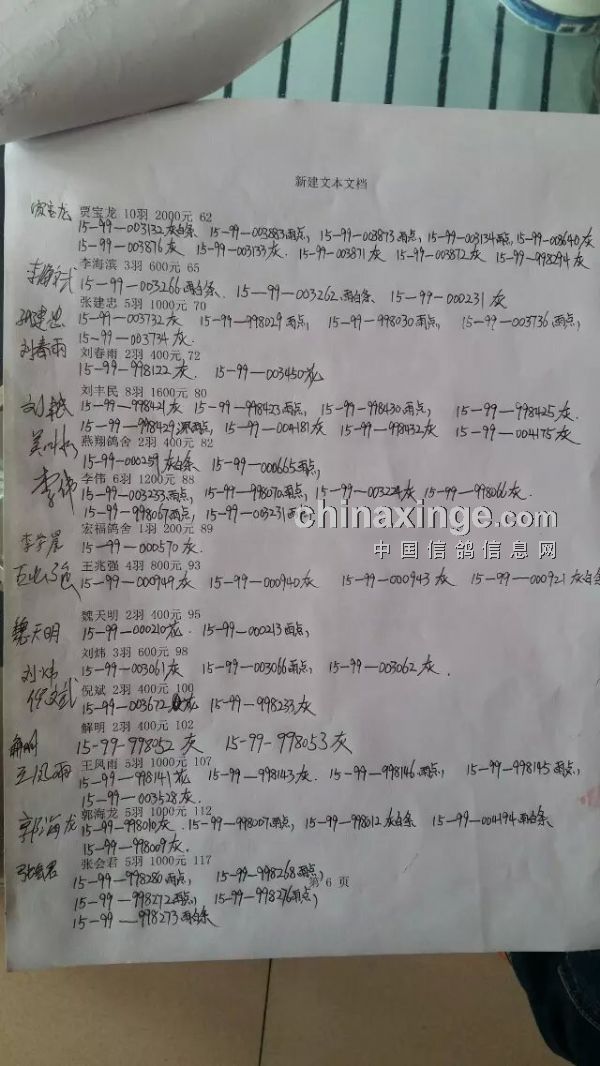 新建文本文档
贾宝龙 10羽 2000元 62
15-99-003132灰白条 15-99-003883雨点, 15-99-003873雨点, 15-99-003134雨点, 15-99-003640灰
15-99-003876灰 15-99-003133灰. 15-99-003871灰 15-99-003872灰 15-99-998294灰
李海滨 3羽 600元 65
15-99-003266雨白条. 15-99-003262雨白条 15-99-000231灰
张建忠 5羽 1000元 70
15-99-003732灰 15-99-998029雨点, 15-99-998030雨点, 15-99-003736雨点,
15-99-003734灰.
刘春雨 刘春雨 2羽 400元 72
15-99-998122灰. 15-99-003450花
刘丰民 8羽 1600元 80
15-99-998421灰 15-99-998423雨点, 15-99-998430雨点, 15-99-998425灰.
15-99-998429深雨点, 15-99-004181灰 15-99-998432灰 15-99-004175灰
燕翔鸽舍 2羽 400元 82
15-99-000259灰白条 15-99-000665雨点,
李伟 李伟 6羽 1200元 88
15-99-003233雨点, 15-99-998070雨点, 15-99-003224灰 15-99-998066灰.
15-99-998067雨点, 15-99-003231雨点
chinaxinge.com
中国信鸽信息网
宏福鸽舍 1羽 200元 89
15-99-000570灰.
王兆强 4羽 800元 93
15-99-000949灰 15-99-000940灰 15-99-000943灰 15-99-000921灰白条
魏天明 2羽 400元 95
魏天明 15-99-000210花. 15-99-000213雨点,
刘炜 3羽 600元 98
刘炜 15-99-003061灰 15-99-003066雨点, 15-99-003062灰.
倪斌 2羽 400元 100
倪斌 15-99-003672花 15-99-998233灰
解明 2羽 400元 102
解明 15-99-998052灰 15-99-998053灰
王凤雨 王凤雨 5羽 1000元 107
15-99-998141花 15-99-998143灰. 15-99-998146雨点, 15-99-998145雨点,
15-99-003528灰.
郭海龙 郭海龙 5羽 1000元 112
15-99-998010灰. 15-99-998007雨点, 15-99-998012灰白条 15-99-004194雨白条
15-99-998009灰.
张会君 张会君 5羽 1000元 117
15-99-998280雨点, 15-99-998268雨点,
第 6 页
15-99-998272雨点, 15-99-998276雨点,
15-99-998273雨白条